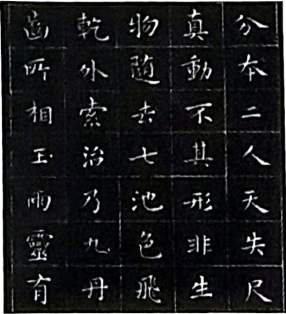 分本二人天失尺
真動不其形非生
物随去七池色飛
乾外索治乃九丹
相玉雨靈有